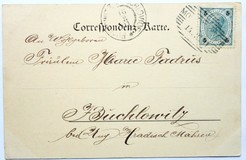 Correspondenz-Karte.
An
Fräulein Marie Tadrus
in
Buchlowitz
bei Ung Hradisch Mähren